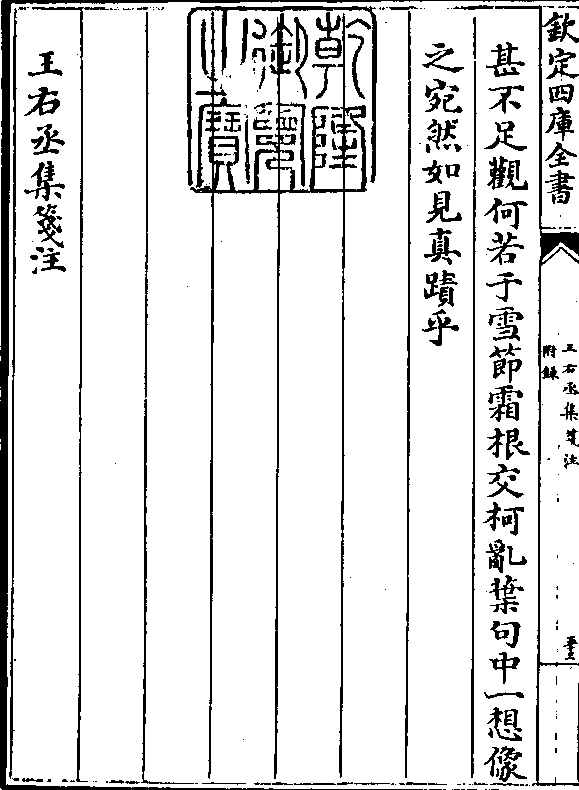 欽定四庫全書
王右丞集箋注
附錄
甚不足觀何若于雪節霜根交柯亂葉句中一想像
之宛然如見真蹟乎
乾隆御覽之寶
王右丞集箋注